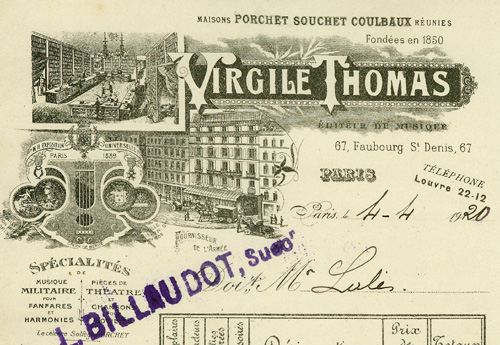 MAISONS PORCHET SOUCHET COULBAUX RÉUNIES
Fondées en 1850
VIRGILE THOMAS
ÉDITEUR DE MUSIQUE
67, Faubourg St Denis, 67
PARIS
TÉLÉPHONE
Louvre 22-12
Paris, le 4-4 1920
EXPOSITION UNIVERSELLE
PARIS 1889
FOURNISSEUR
DE L'ARMÉE
J. BILLAUDOT, Succr
Doit, Mr
SPÉCIALITÉS
DE
MUSIQUE
MILITAIRE
POUR
FANFARES
ET
HARMONIES
PIÈCES DE
THÉATRE
ET
PORCHET
Prix
de
Totaux